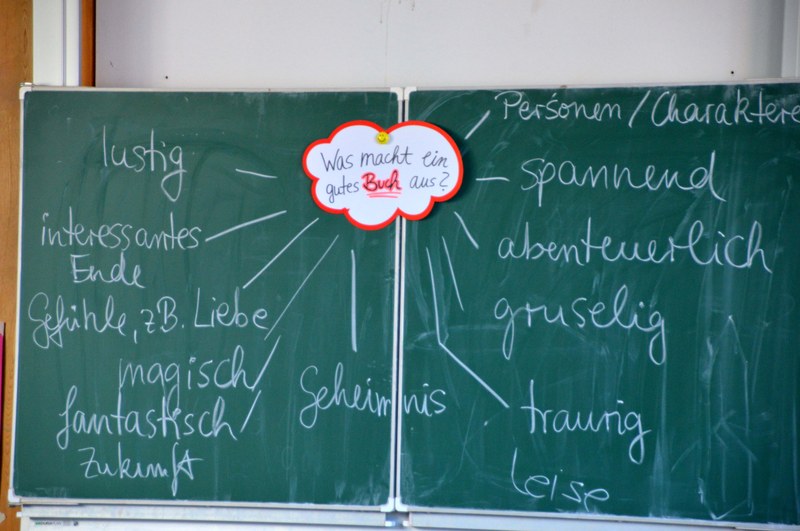 Was macht ein
gutes Buch aus?
lustig
interessantes
Ende
Gefühle, z.B. Liebe
magisch
fantastisch
Zukunft
Geheimnis
Personen / Charaktere
spannend
abenteuerlich
gruselig
traurig
leise